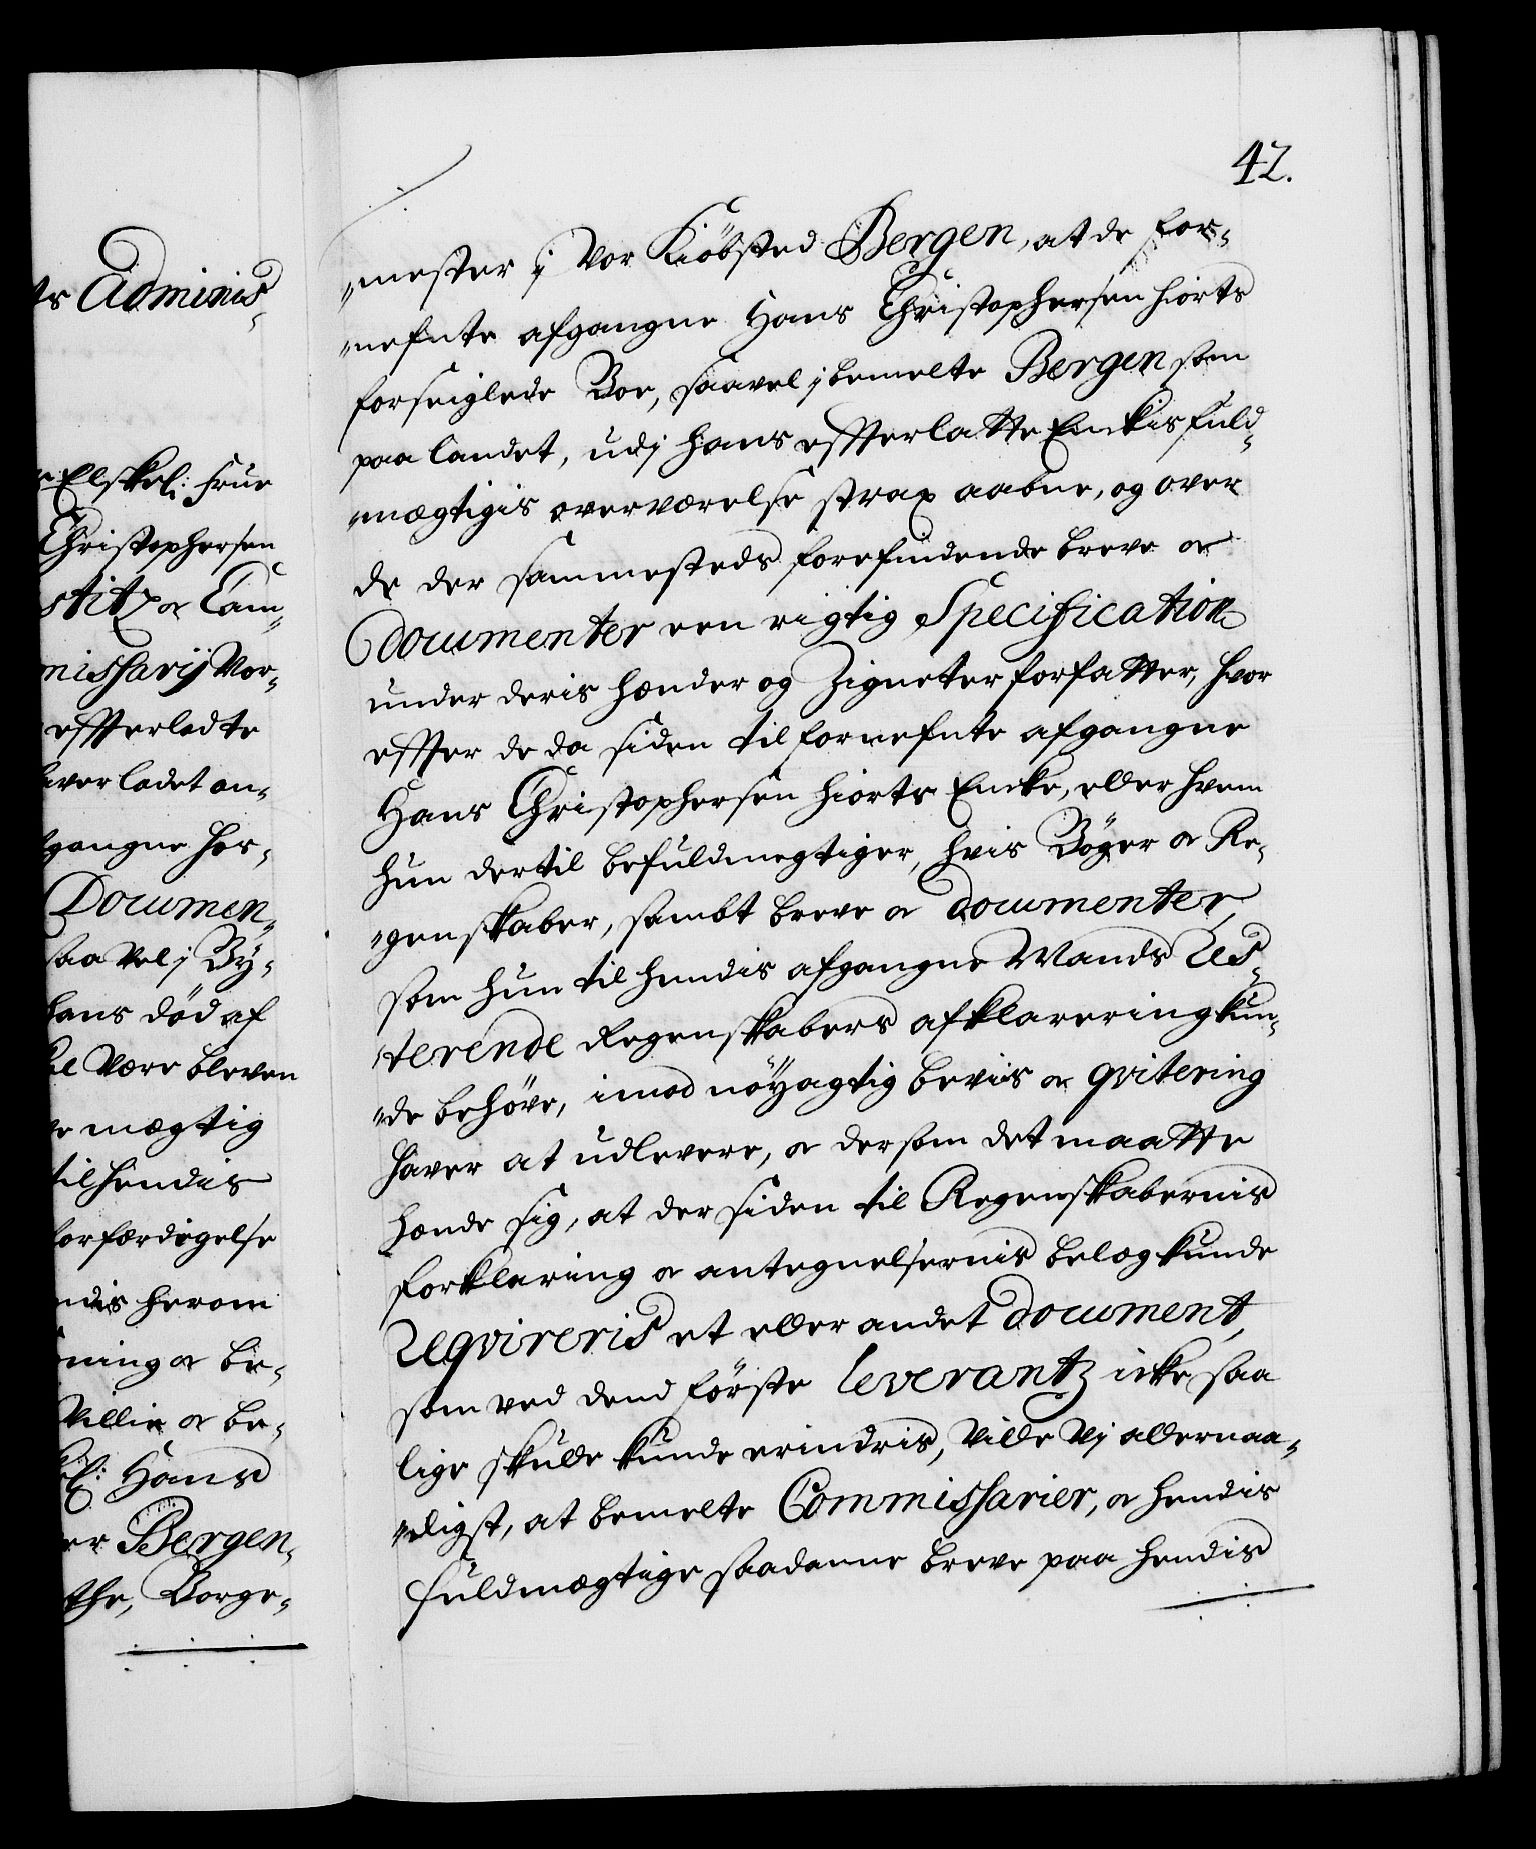 ts Adminis-
e Elskel: Frue
Christophersen
stitz oc Cam-
missarij Vor-
effterladte
haver ladet an-
fgangne Her-
Documen-
saa vel i By-
hans död af
være bleven
mægtig
til hendis
forfærdigelse
ndis herom
ning oc be-
Villie oc be-
El: Hans
er Bergen-
the, Borge-
42.
"mester i Vor Kiöbsted Bergen, at de for-
"nefnte afgangne Hans Christophersen hiorts
forseiglede Boe, saavel i bemelte Bergen som
paa landet, udi hans effterlatte Enckis fuld-
"mægtigis overværelse strax aabne, og over
de der sammesteds forefindende breve oc
Documenter een rigtig Specification
under deris hænder og Zigneter forfatter, hvor
effter de da siden til fornefnte afgangne
Hans Christophersen hiorts Encke, eller hvem
hun dertil befuldmegtiger, hvis Böger oc Re-
"genskaber, sambt breve oc documenter,
som hun til hendis afgangne Mands Res-
"terende Regenskabers afklarering kun-
"de behöve, imod nöyagtig beviis oc qvitering
haver at udlevere, oc dersom det maatte
hænde sig, at der siden til Regenskabernis
forklaring oc antegnelsernis belæg kunde
Reqvireris et eller andet document,
som ved dend förste leverantz icke saa
lige skulle kunde erindris, Ville Vi allernaa-
"digst, at bemelte Commissarier, oc hendis
fuldmægtige saadanne breve paa hendis